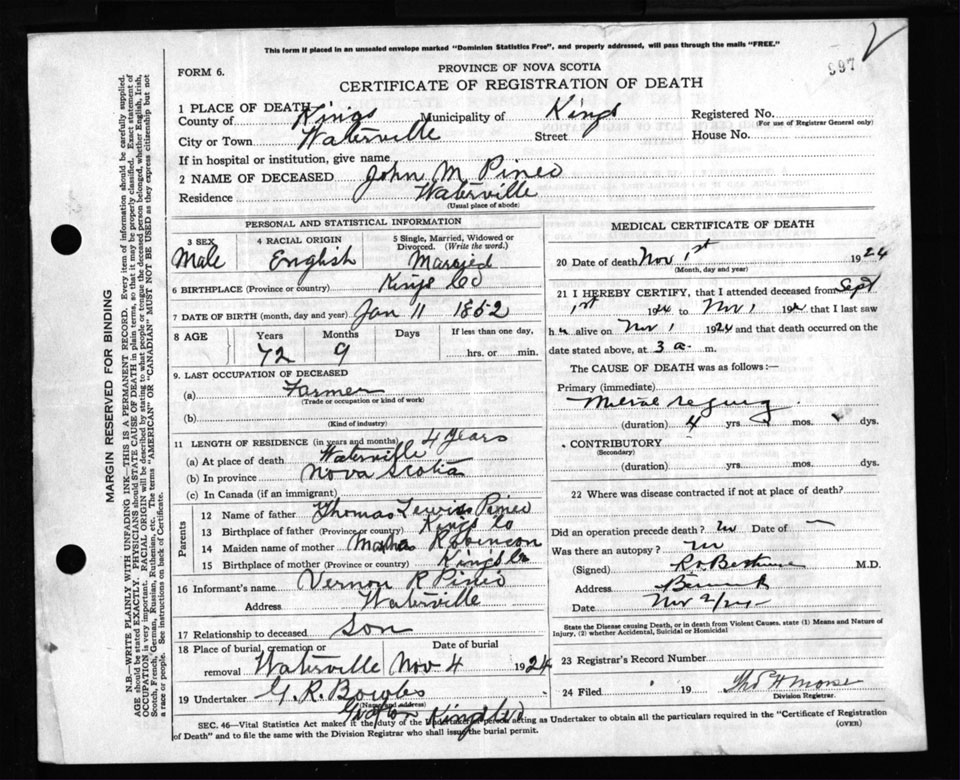 This form if placed in an unsealed envelope marked "Dominion Statistics Free", and properly addressed, will pass through the mails "FREE."
997
FORM 6.
PROVINCE OF NOVA SCOTIA
CERTIFICATE OF REGISTRATION OF DEATH
1 PLACE OF DEATH—
County of Kings Municipality of Kings Registered No.
(For use of Registrar General only)
City or Town Waterville Street House No.
If in hospital or institution, give name
2 NAME OF DECEASED John M Pineo
Residence Waterville
(Usual place of abode)
PERSONAL AND STATISTICAL INFORMATION
3 SEX 4 RACIAL ORIGIN 5 Single, Married, Widowed or Divorced. (Write the word.)
Male English Married
6 BIRTHPLACE (Province or country) Kings Co
7 DATE OF BIRTH (month, day and year) Jan 11 1852
8 AGE Years Months Days If less than one day,
72 9 hrs. or min.
9. LAST OCCUPATION OF DECEASED
(a) Farmer
(Trade or occupation or kind of work)
(b)
(Kind of industry)
11 LENGTH OF RESIDENCE (in years and months) 4 Years
(a) At place of death Waterville
(b) In province Nova Scotia
(c) In Canada (if an immigrant)
Parents
12 Name of father Thomas Lewis Pineo
13 Birthplace of father (Province or country) Kings Co
14 Maiden name of mother Robinson
15 Birthplace of mother (Province or country) Kings Co
16 Informant's name Vernon R Pineo
Address Waterville
17 Relationship to deceased Son
18 Place of burial, cremation or removal Date of burial
Waterville Nov 4 1924
19 Undertaker G. R. Bowles
(Name and address)
Grafton Kings Co
MEDICAL CERTIFICATE OF DEATH
20 Date of death Nov 1st 1924
(Month, day and year)
21 I HEREBY CERTIFY, that I attended deceased from Sept
1st 1924 to Nov 1 192 that I last saw
h alive on Nov 1 1924 and that death occurred on
date stated above, at 3 a. m.
The CAUSE OF DEATH was as follows:—
Primary (immediate)
(duration) 4 yrs. mos. dys.
CONTRIBUTORY
(Secondary)
(duration) yrs. mos. dys.
22 Where was disease contracted if not at place of death?
Did an operation precede death? no Date of
Was there an autopsy? no
(Signed) M.D.
Address Berwick
Date Nov 2/24
State the Disease causing Death, or in death from Violent Causes, state (1) Means and Nature of Injury, (2) whether Accidental, Suicidal or Homicidal
23 Registrar's Record Number
24 Filed 19 Thos H Morse
Division Registrar.
SEC. 46—Vital Statistics Act makes it the duty of the Undertaker or person acting as Undertaker to obtain all the particulars required in the "Certificate of Registration of Death" and to file the same with the Division Registrar who shall issue the burial permit.
(OVER)
MARGIN RESERVED FOR BINDING
N.B.—WRITE PLAINLY WITH UNFADING INK—THIS IS A PERMANENT RECORD. Every item of information should be carefully supplied.
AGE should be stated EXACTLY. PHYSICIANS should STATE CAUSE OF DEATH in plain terms, so that it may be properly classified. Exact statement of
OCCUPATION is very important. RACIAL ORIGIN will be described by stating to what people or tongue the deceased person belonged, whether English, Irish,
Scotch, French, German, Russian, Ruthenian, etc. The terms "AMERICAN" OR "CANADIAN" MUST NOT BE USED as they express citizenship but not
a race or people. See instructions on back of Certificate.